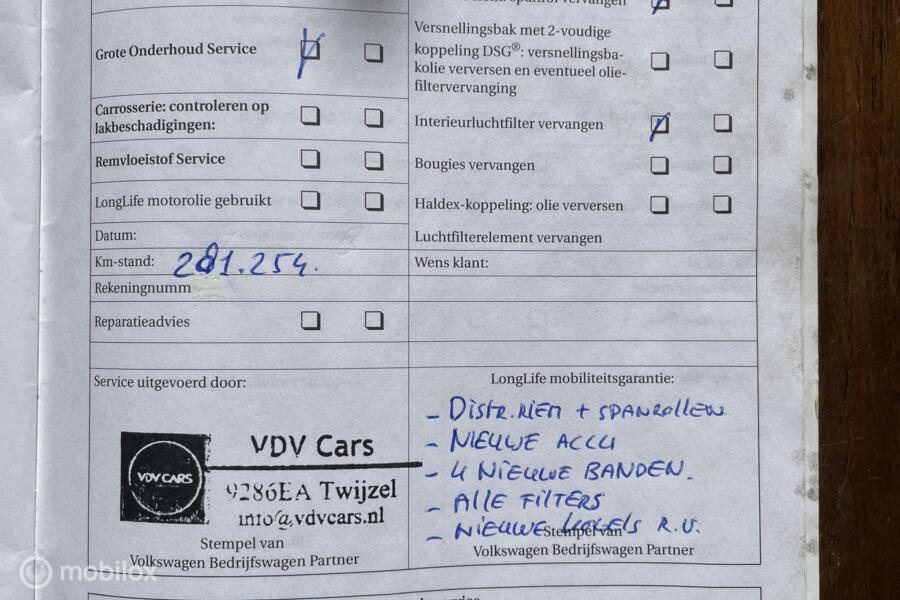 vervangen
Grote Onderhoud Service
Versnellingsbak met 2-voudige
koppeling DSG®: versnellingsba-
kolie verversen en eventueel olie-
filtervervanging
Carrosserie: controleren op
lakbeschadigingen:
Interieurluchtfilter vervangen
Remvloeistof Service
Bougies vervangen
LongLife motorolie gebruikt
Haldex-koppeling: olie verversen
Datum:
Luchtfilterelement vervangen
Km-stand: 281.254.
Wens klant:
Rekeningnumm
Reparatieadvies
Service uitgevoerd door:
LongLife mobiliteitsgarantie:
- DISTR.RIEM + SPANROLLEN
- NIEUWE ACCU
- 4 NIEUWE BANDEN.
- ALLE FILTERS
- NIEUWE KOGELS R.V.
VDV CARS
VDV Cars
9286EA Twijzel
info@vdvcars.nl
Stempel van
Volkswagen Bedrijfswagen Partner
Stempel van
Volkswagen Bedrijfswagen Partner
mobilox